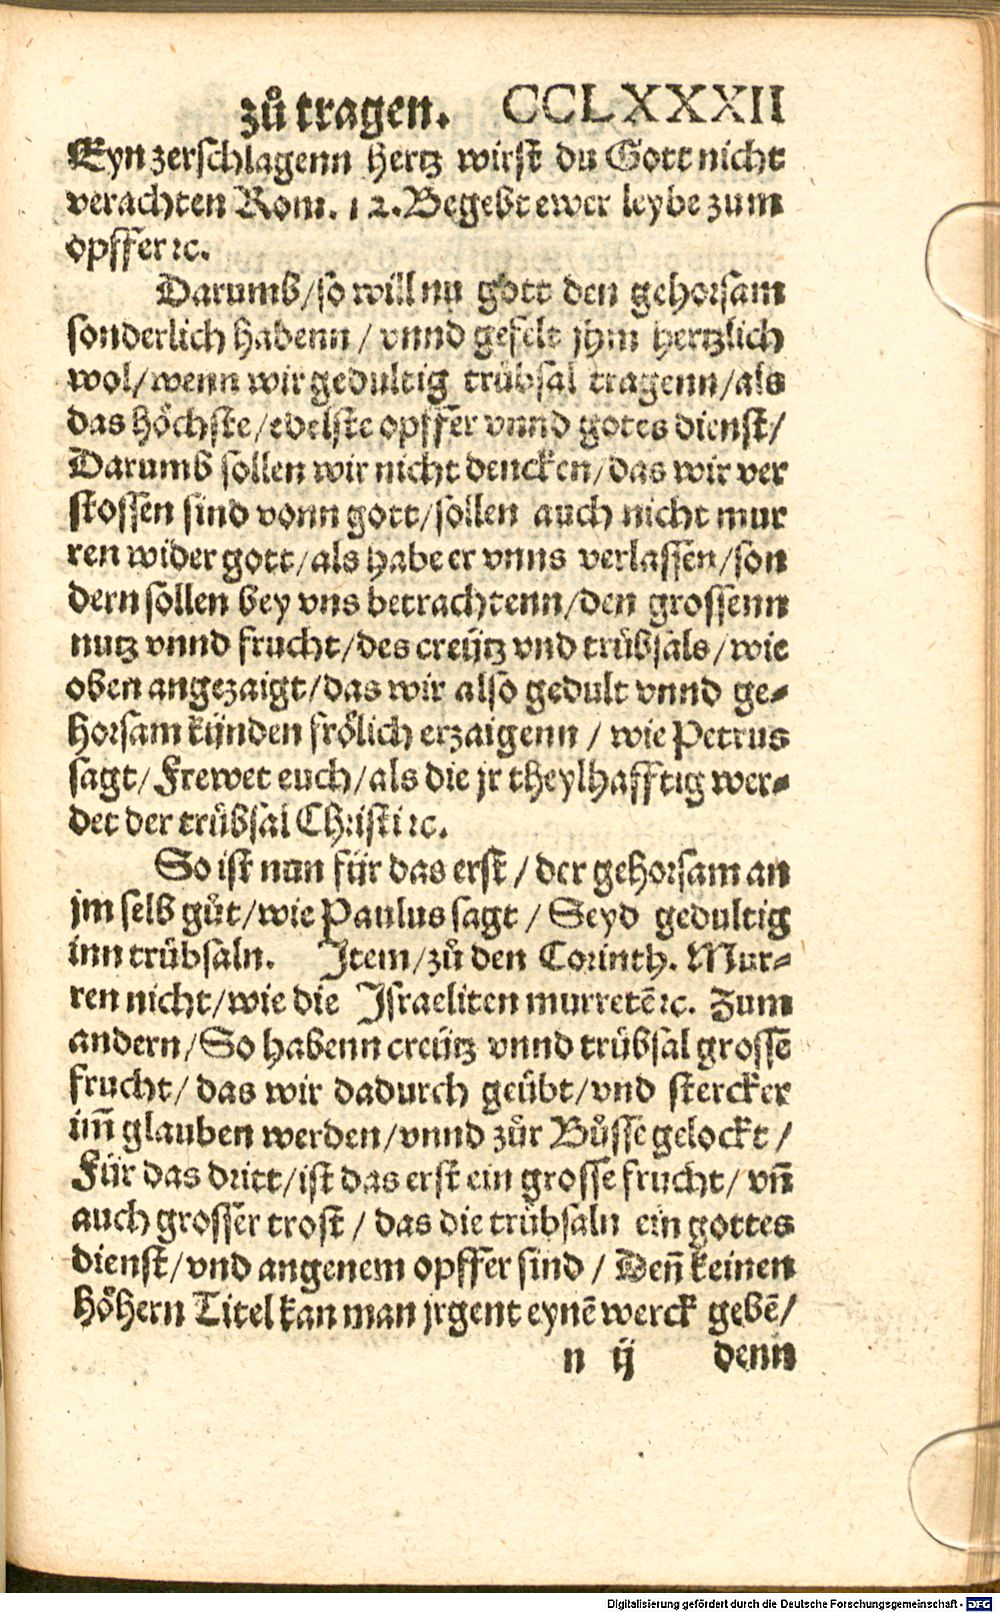 zů tragen. CCLXXXII
Eyn zerschlagenn hertz wirst du Gott nicht
verachten Rom. 12. Begebt ewer leybe zum
opffer ꝛc.
Darumb/so will nu gott den gehorsam
sonderlich habenn / vnnd gefelt jhm hertzlich
wol/wenn wir gedultig trübsal tragenn/als
das höchste/edelste opffer vnnd gotes dienst/
Darumb sollen wir nicht dencken/das wir ver
stossen sind vonn gott/sollen auch nicht mur
ren wider gott/als habe er vnns verlassen/son
dern sollen bey vns betrachtenn/den grossenn
nutz vnnd frucht/des creütz vnd trübsals/wie
oben angezaigt/das wir also gedult vnnd ge-
horsam künden frölich erzaigenn / wie Petrus
sagt/Frewet euch/als die jr theylhafftig wer-
det der trübsal Christi ꝛc.
So ist nun für das erst / der gehorsam an
jm selb gůt/wie Paulus sagt / Seyd gedultig
inn trübsaln. Item/zů den Corinth. Mur-
ren nicht/wie die Israeliten murretē ꝛc. Zum
andern/So habenn creütz vnnd trübsal grossē
frucht/ das wir dadurch geübt/vnd stercker
im̄ glauben werden/vnnd zůr Bůsse gelockt /
Für das dritt/ist das erst ein grosse frucht/ vn̄
auch grosser trost / das die trübsaln ein gottes
dienst/vnd angenem opffer sind / Den̄ keinen
höhern Titel kan man jrgent eynē werck gebē/
n ij denn
Digitalisierung gefördert durch die Deutsche Forschungsgemeinschaft - DFG